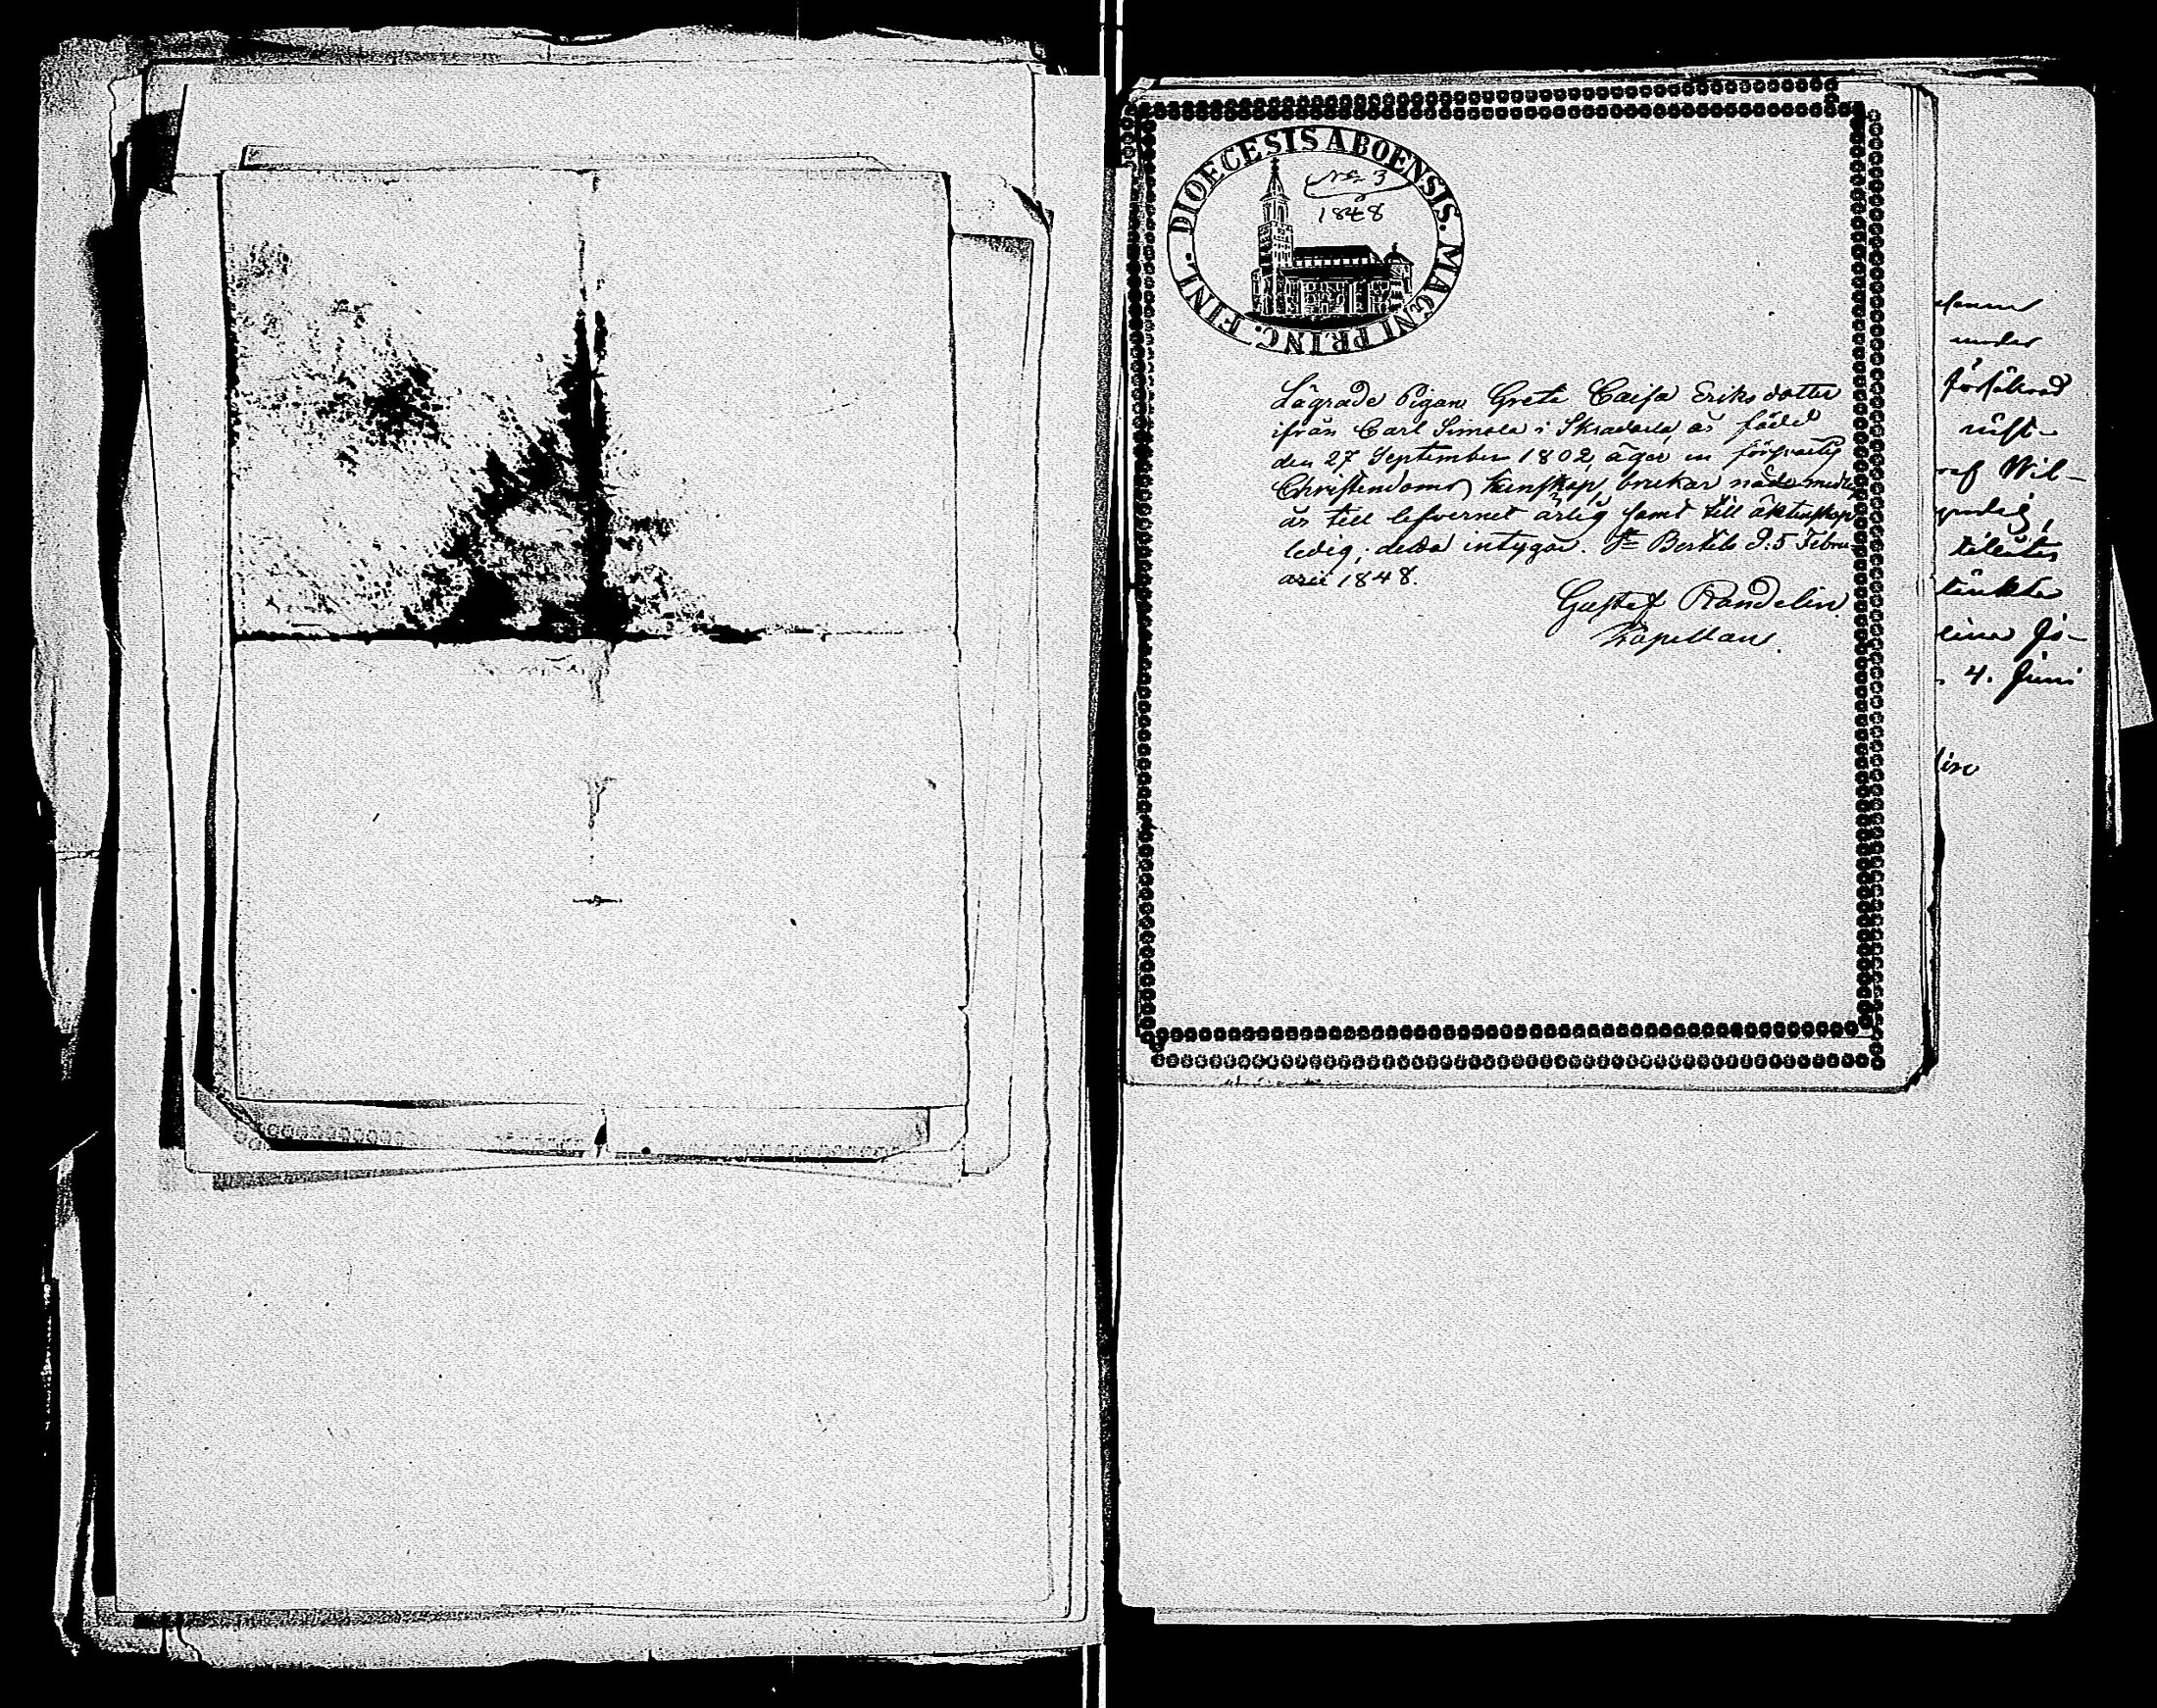 DIOECESIS ABOENSIS. MAGNI PRINC. FINL.
No 3
1848
Lagrade Pigan Greta Caisa Eriksdotter
ifrån Carl Simola i Skradarla, är född
den 27 September 1802, äger en försvarlig
Christendoms kunskap, brukar nådemedlen
är till lefvernet ärlig samt till äktenskap
ledig; detta intygar. St Bertils d. 5 Febru-
arii 1848.
Gustaf Randelin
Kapellans.
under
af Wil-
4. Juni